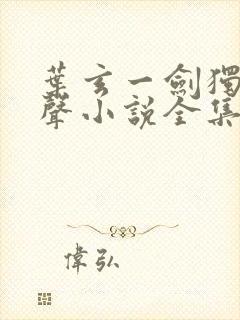 葉玄一劍獨
聲小說全集
偉弘